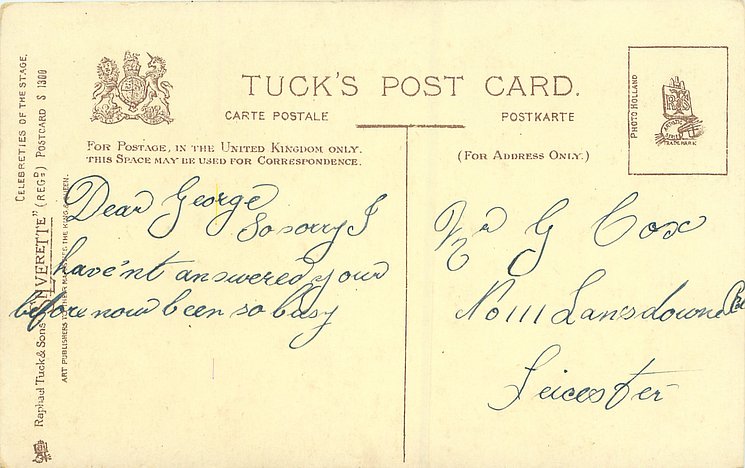 TUCK'S POST CARD.
CARTE POSTALE
POSTKARTE
FOR POSTAGE, IN THE UNITED KINGDOM ONLY.
THIS SPACE MAY BE USED FOR CORRESPONDENCE.
(FOR ADDRESS ONLY.)
PHOTO HOLLAND
TRADE MARK
CELEBRETIES OF THE STAGE.
Raphael Tuck & Sons' "INVERETTE" (REGD) POSTCARD S 1300
ART PUBLISHERS TO THEIR MAJESTIES THE KING & QUEEN.
Dear George
So sorry I
have'nt answered your
before now been so busy
Mr G Cox
No 111 Lansdowne
Leicester